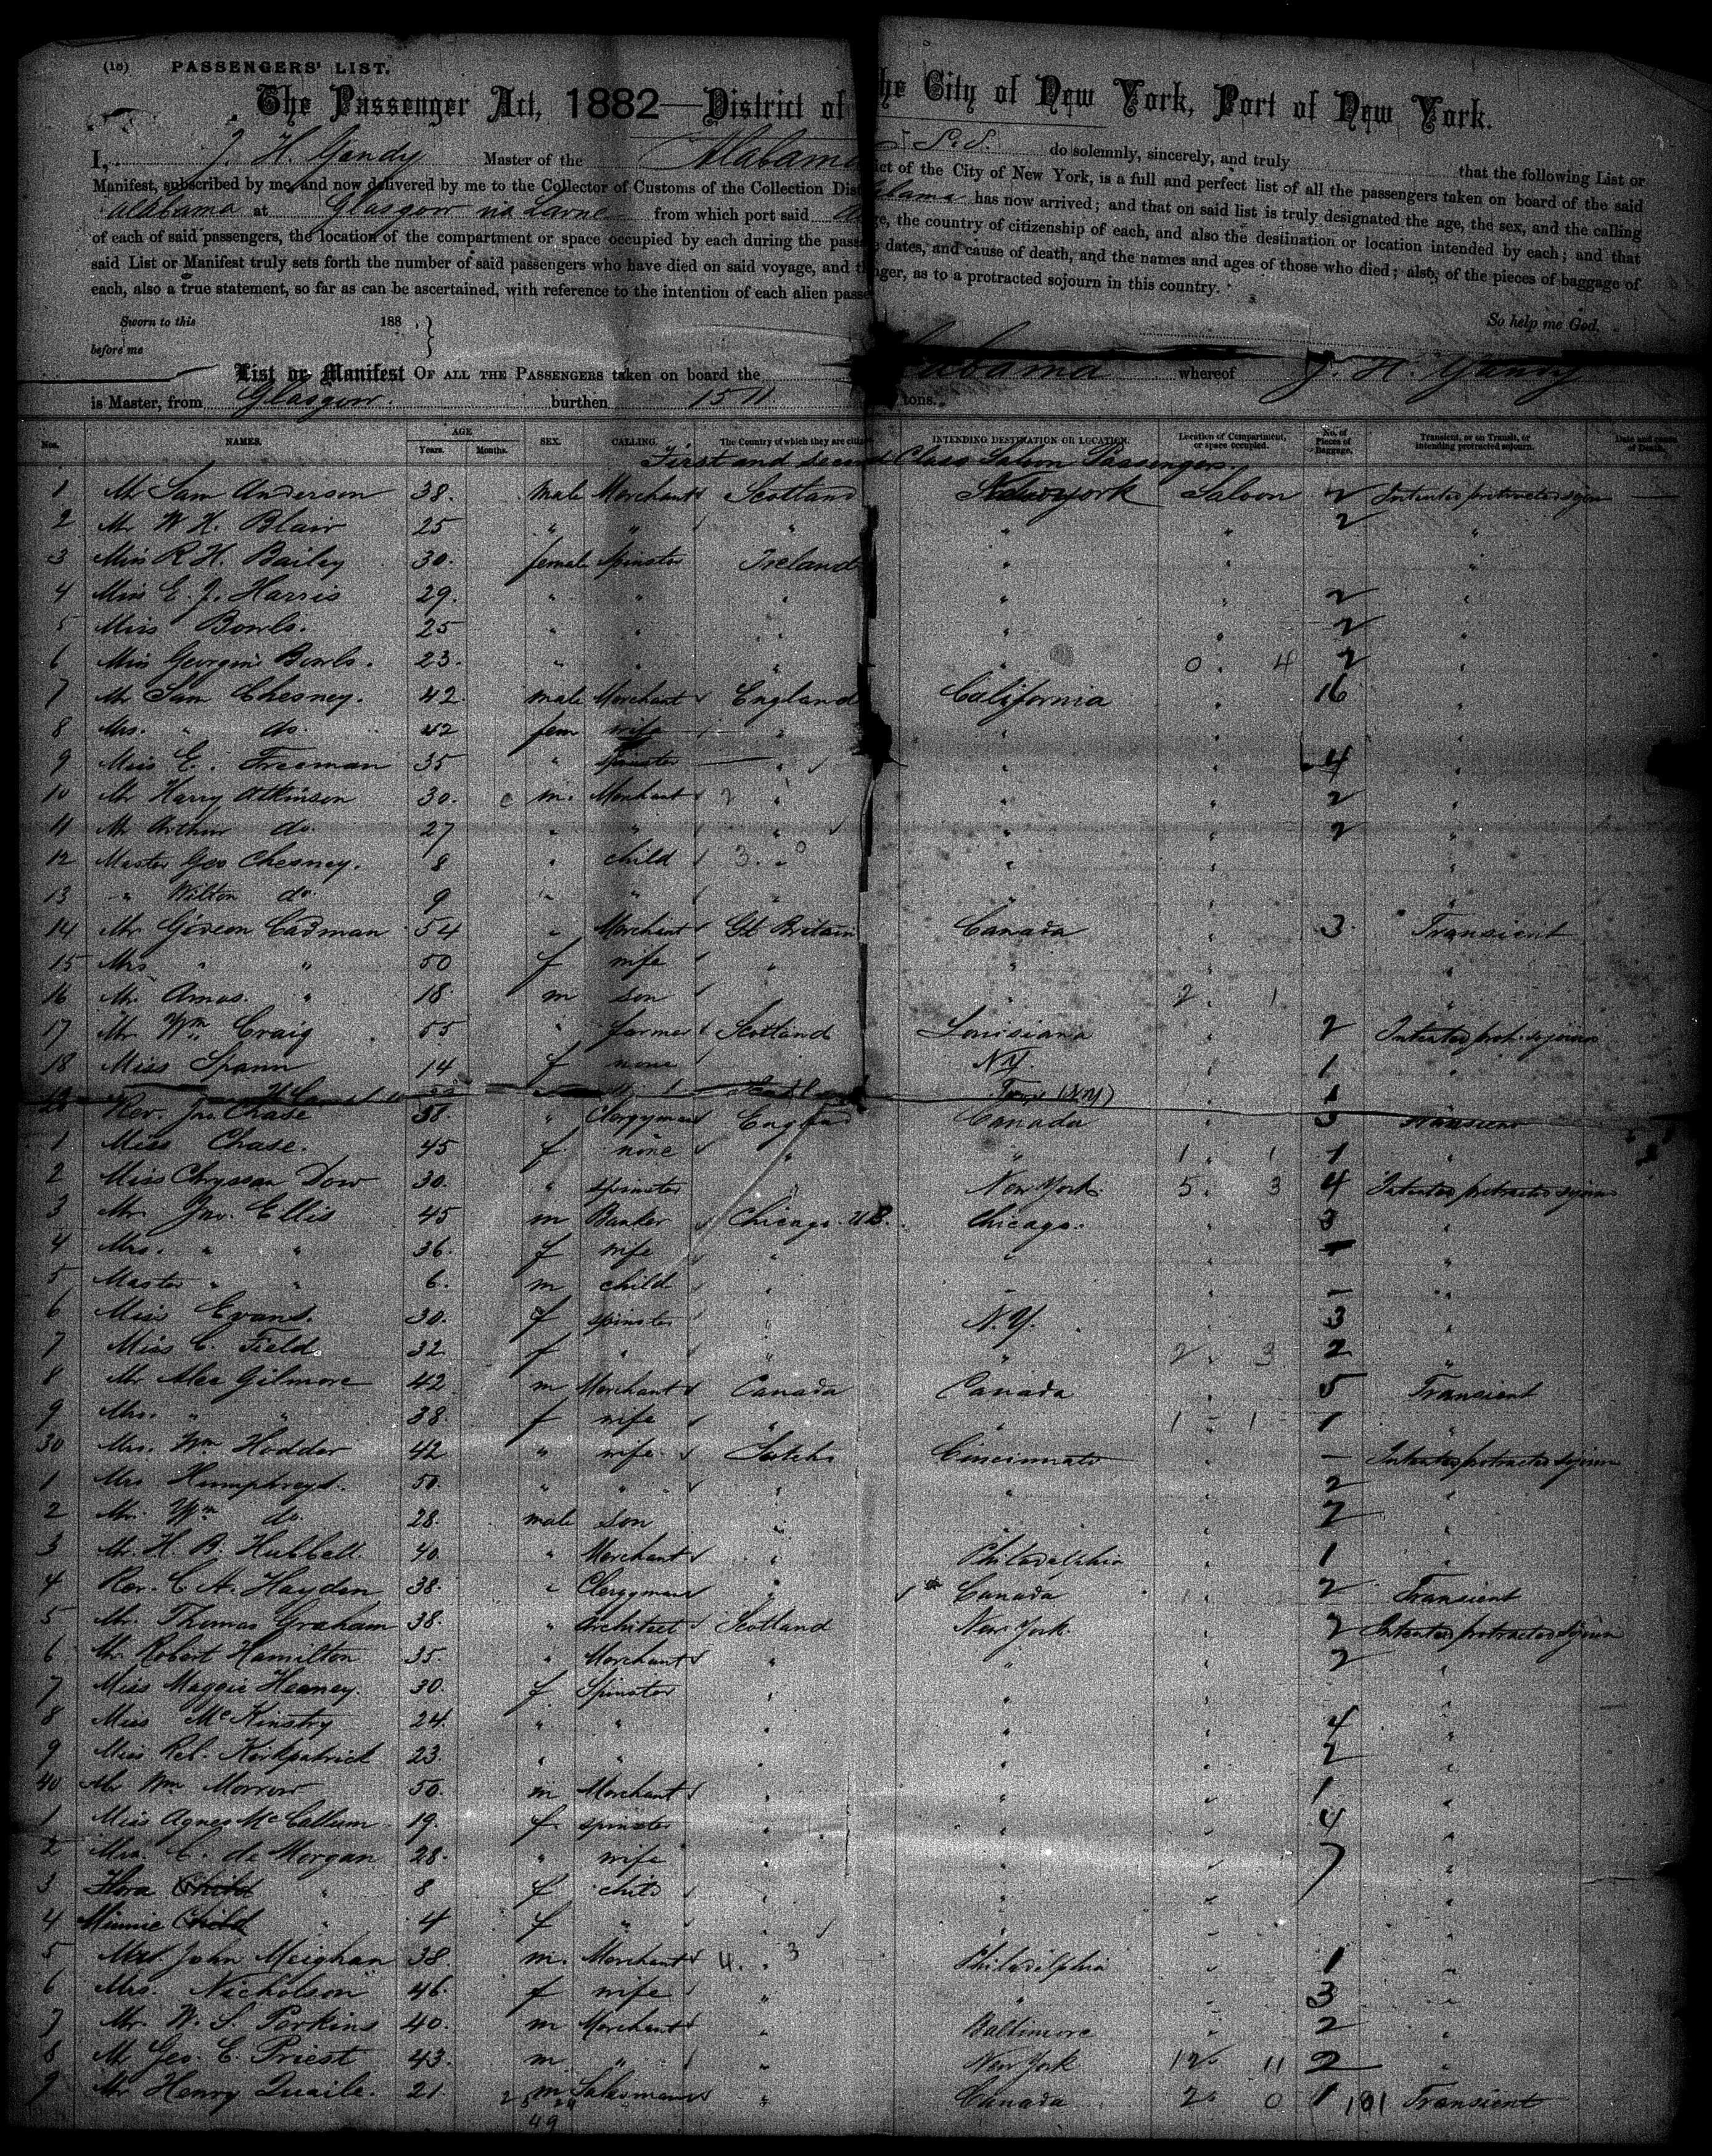 (18) PASSENGERS' LIST.
The Passenger Act, 1882—District of the City of New York, Port of New York.
I, J. H. Gandy Master of the Alabama S.S. do solemnly, sincerely, and truly that the following List or
Manifest, subscribed by me, and now delivered by me to the Collector of Customs of the Collection District of the City of New York, is a full and perfect list of all the passengers taken on board of the said
Alabama at Glasgow via Larne from which port said Alabama has now arrived; and that on said list is truly designated the age, the sex, and the calling
of each of said passengers, the location of the compartment or space occupied by each during the passage, the country of citizenship of each, and also the destination or location intended by each; and that
said List or Manifest truly sets forth the number of said passengers who have died on said voyage, and the dates, and cause of death, and the names and ages of those who died; also, of the pieces of baggage of
each, also a true statement, so far as can be ascertained, with reference to the intention of each alien passenger, as to a protracted sojourn in this country.
Sworn to this 188
before me
So help me God.
List or Manifest OF ALL THE PASSENGERS taken on board the Alabama whereof J. H. Gandy
is Master, from Glasgow. burthen 1511 tons.
Nos. NAMES. AGE Years. Months. SEX. CALLING. The Country of which they are citizens INTENDING DESTINATION OR LOCATION. Location of Compartment, or space occupied. No. of Pieces of Baggage. Transient, or on Transit, or intending protracted sojourn. Date and cause of Death.
First and second Class Saloon Passengers
1 Mr Sam Anderson 38. male Merchant Scotland New York Saloon 2 Intended protracted sojn —
2 Mr W H. Blair 25 " " " " " 2 "
3 Miss R. H. Bailey 30. female Spinster Ireland " " "
4 Miss E. J. Harris 29. " " " " " 2 "
5 Miss Bowls. 25 " " " " " 2 "
6 Miss Georgin Bowls. 23. " " " " 0 4 2 "
7 Mr Sam Chesney. 42 male Merchant England California " 16 "
8 Mrs. " do. 42 fem wife " " " "
9 Miss E. Freeman 35 " Spinster " " " 4 "
10 Mr Harry Atkinson 30. m. Merchant 2 " " " 2 "
11 Mr Arthur do. 27 " " " " " 2 "
12 Master Geo Chesney. 8 " child 3. 0 " " "
13 " Wilton do. 9 " " " " " "
14 Mr Gideon Cadman 54 " Merchant Gt Britain Canada " 3 Transient
15 Mrs " " 50 f wife " " " "
16 Mr. Amos. " 18 m son " 2 1 "
17 Mr Wm Craig 55 " farmer Scotland Louisiana " 2 Intended prot. sojourn
18 Miss Spann 14 f none N.Y. " 1 "
Troy (N.Y) 1
20 Rev. Jno. Chase 58. " Clergyman England Canada " 3 Transient
1 Miss Chase. 45 f none " " 1 1 1 "
2 Miss Chryssan Dow 30. " spinster New York. 5. 3 4 Intended protracted sojourn
3 Mr. Jno. Ellis 45 m Banker Chicago. U.S. Chicago. " 3 "
4 Mrs. " " 36. f wife " " " "
5 Master " " 6. m child " " " — "
6 Miss Evans. 30. f spinster " N.Y. " 3 "
7 Miss C. Field. 32 f " " " 2 3 2 "
8 Mr Alex Gilmore 42 m Merchant Canada Canada " 5 Transient
9 Mrs. " " 38. f wife " " 1 1 1 "
30 Mrs. Wm. Hodder 42 " wife Cincinnati — Intended protracted sojourn
1 Mrs Humphreys. 50. " " " " " 2 "
2 Mr. Wm do. 28. male son " " " 2 "
3 Mr. H. B. Hubbell. 40. " Merchant " Philadelphia " 1 "
4 Rev. C. A. Hayden 38. " Clergyman " Canada 2 Transient
5 Mr. Thomas Graham 38. " Architect Scotland New York. " 2 Intended protracted sojourn
6 Mr. Robert Hamilton 35. " Merchant " " " 2 "
7 Miss Maggie Heaney. 30. f. Spinster " " " "
8 Miss McKinstry 24. " " " " " 4 "
9 Miss Reb. Kirkpatrick 23. " " " " " 2 "
40 Mr Wm. Morrow 50. m Merchant " " " 1 "
1 Miss Agnes McCallum 19. f. spinster " " " 4 "
2 Mrs. C. de Morgan 28. " wife " " " 7 "
3 Flora Child " 8 f child " " " "
4 Minnie Child " 4 f " " " " "
5 Mr. John Meighan 38. m. Merchant 4. 3 Philadelphia " 1 "
6 Mrs. Nicholson 46. f wife " " " 3 "
7 Mr. W. S. Perkins 40. m Merchant " Baltimore " 2 "
8 Mr Geo. C. Priest 43. m " " New York 12 11 2 "
9 Mr Henry Quaile. 21 m Salesman " Canada 2 0 1 101 Transient
25 24
49